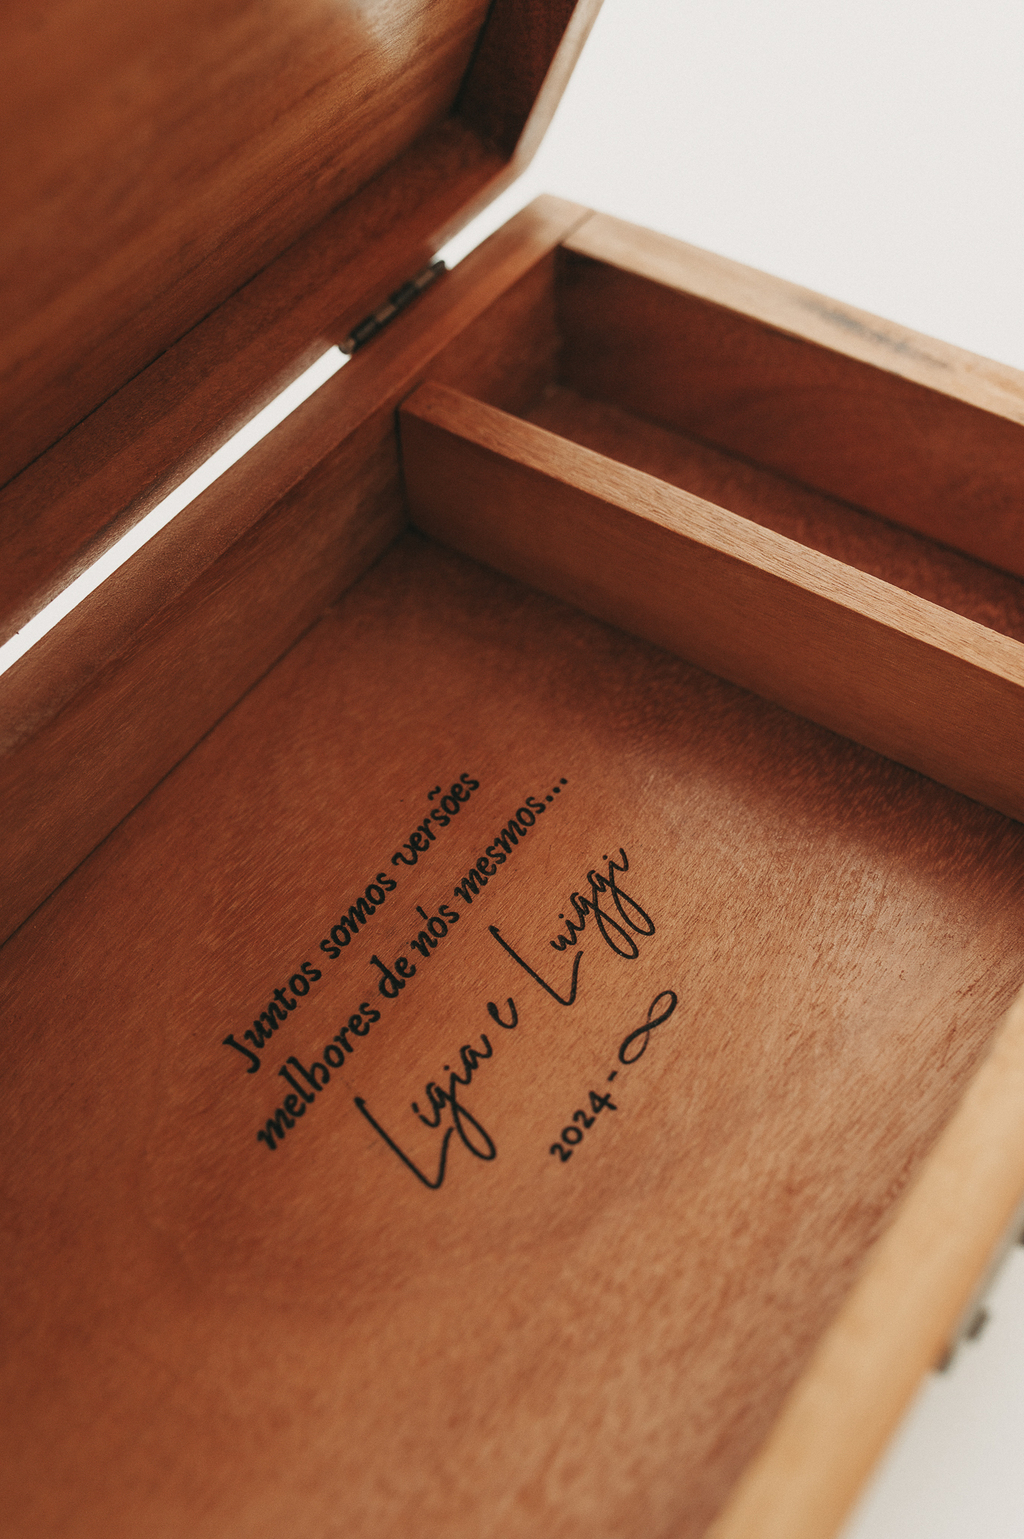 Juntos somos versões
melhores de nós mesmos...
Ligia e Luiggi
2024-∞